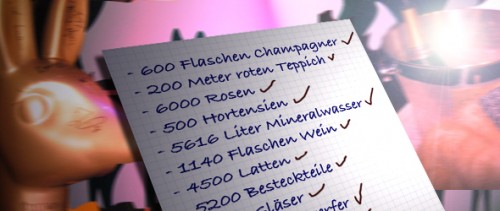 - 600 Flaschen Champagner ✓
- 200 Meter roten Teppich ✓
- 6000 Rosen ✓
- 500 Hortensien ✓
- 5616 Liter Mineralwasser ✓
- 1140 Flaschen Wein ✓
- 4500 Latten ✓
5200 Besteckteile ✓
Gläser ✓